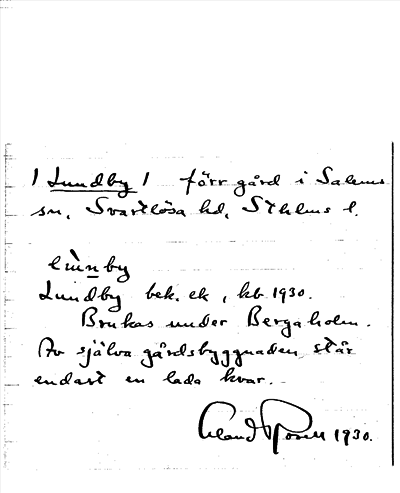 / Lundby / förr gård i Salems
sn, Svartlösa hd, Sthlms l.
lùnby
Lundby bek. ek, kb 1930.
Brukas under Bergaholm.
Av själva gårdsbyggnaden står
endast en lada kvar.
Roséll 1930.